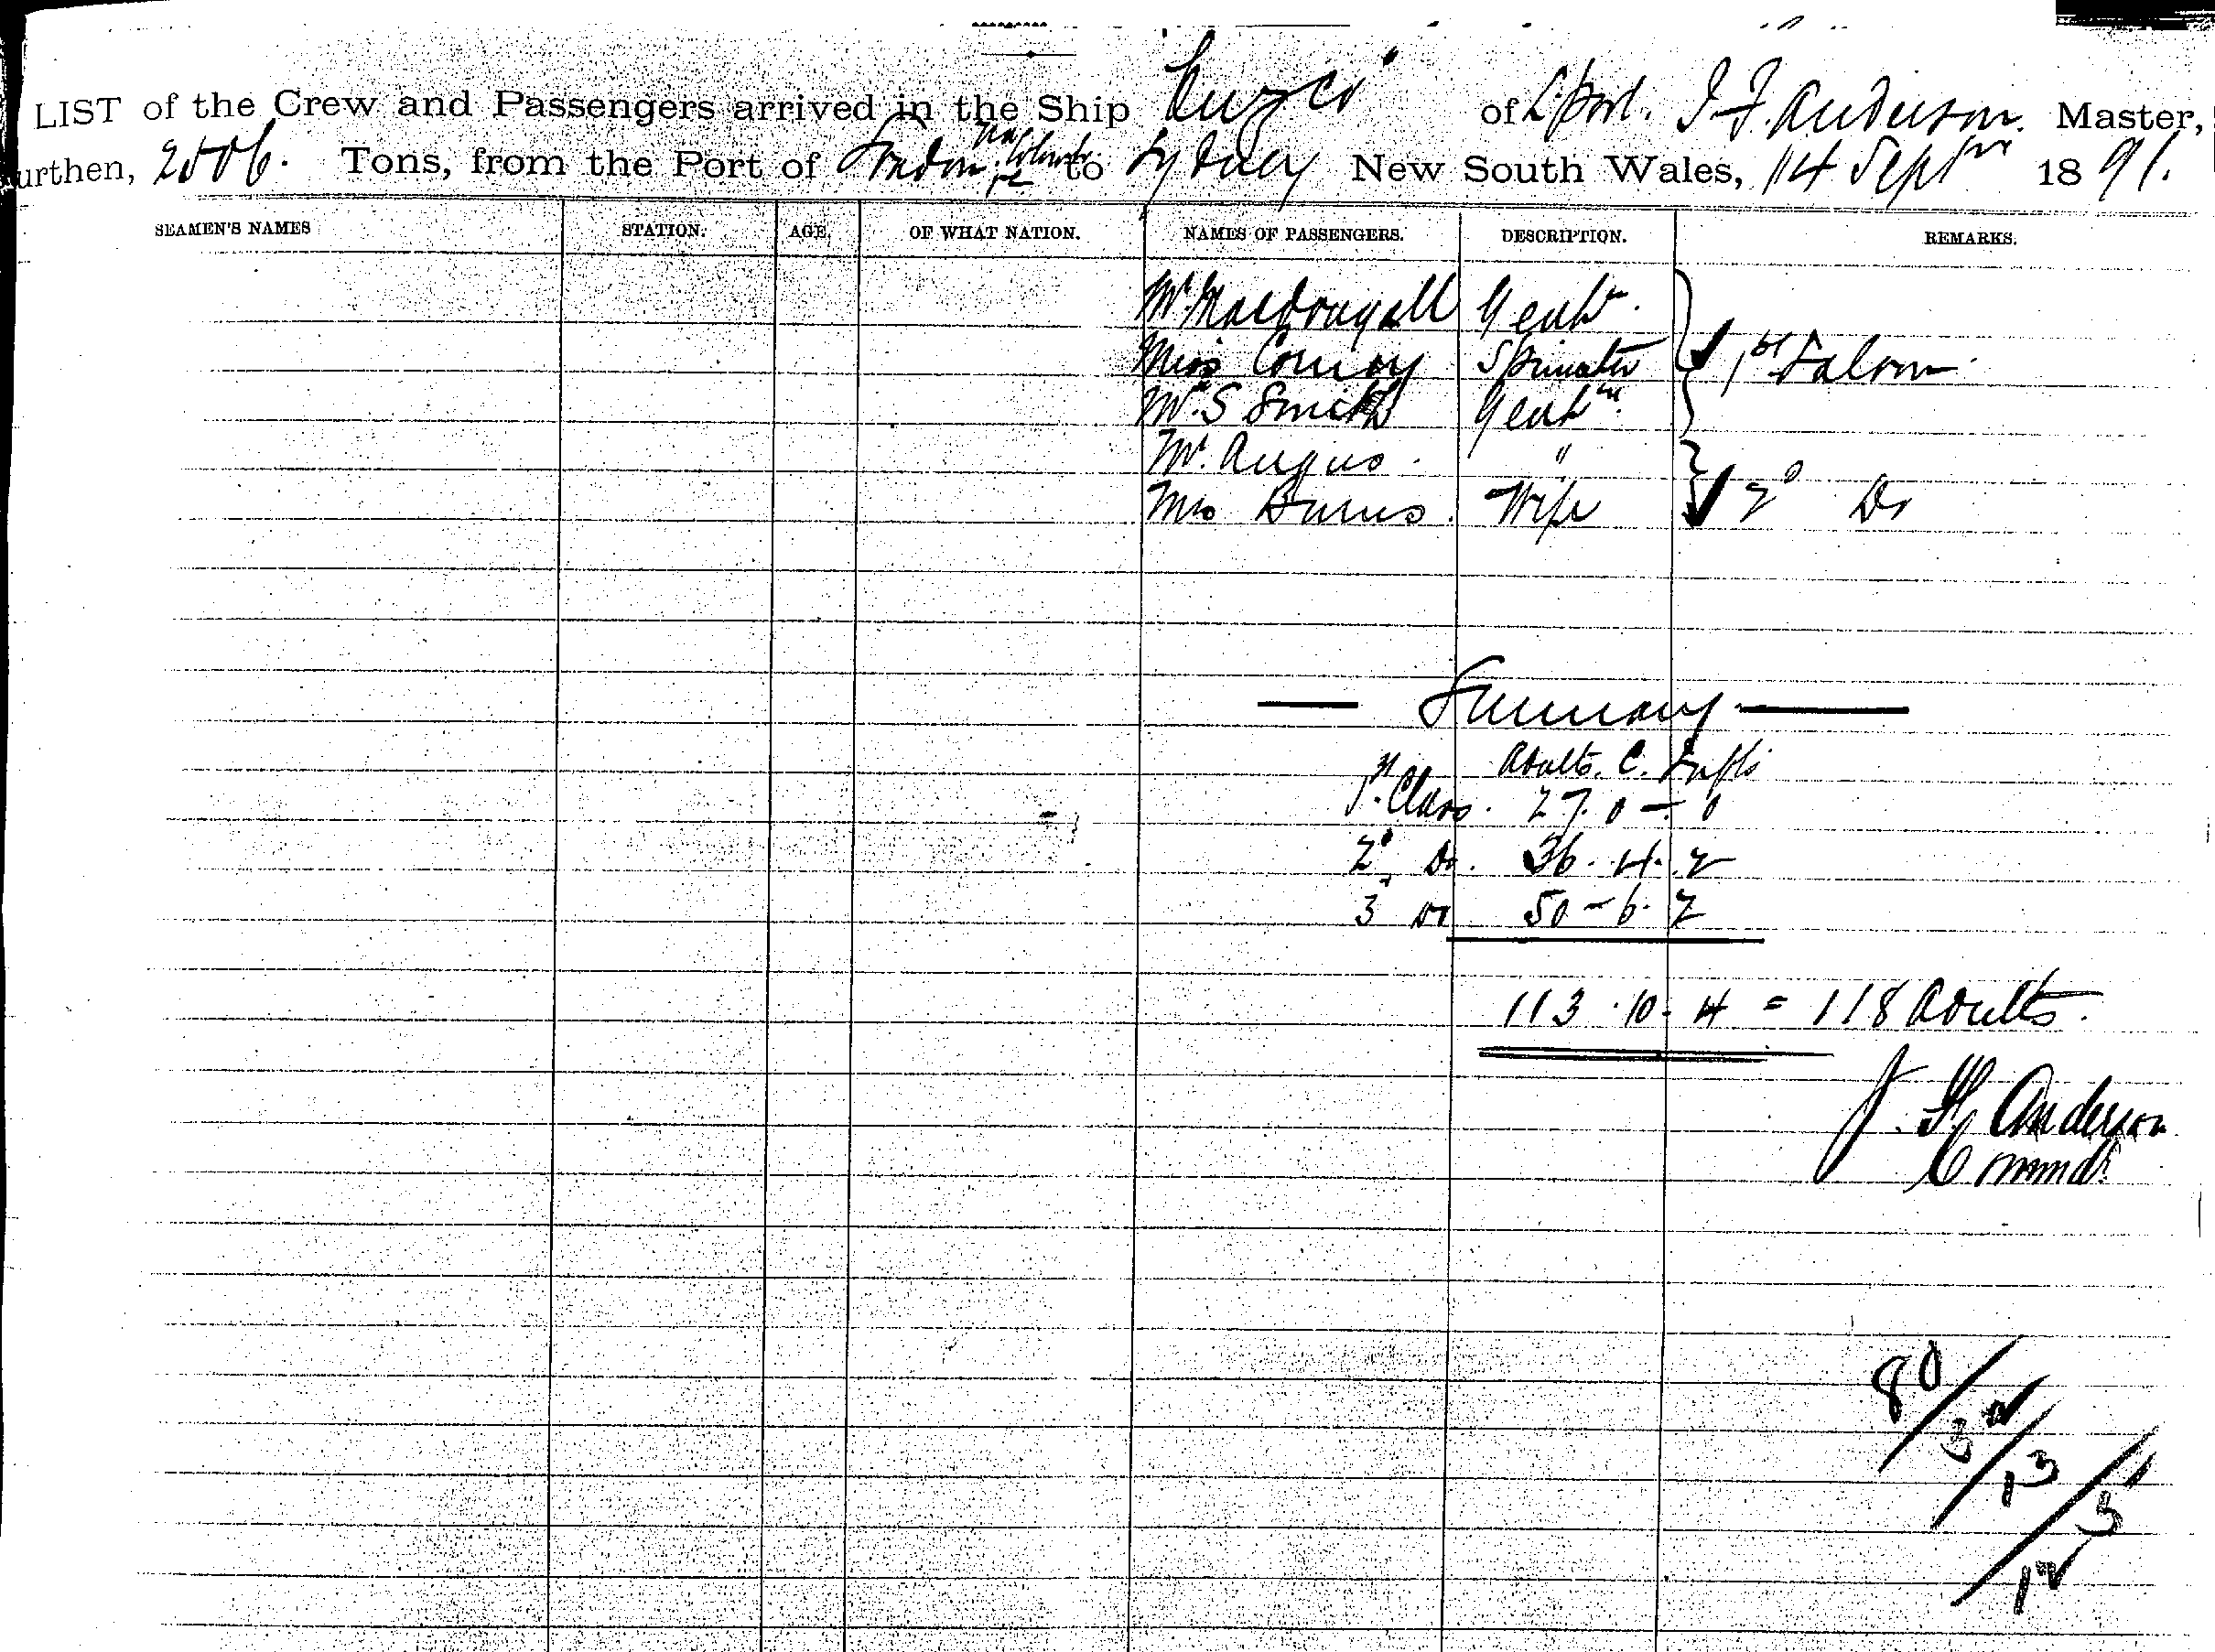 LIST of the Crew and Passengers arrived in the Ship Cuzco of L'pool. J. F. Anderson. Master,
urthen, 2506. Tons, from the Port of London via Colombo to Sydney New South Wales, 14 Septr 1891.
SEAMEN'S NAMES STATION. AGE. OF WHAT NATION. NAMES OF PASSENGERS. DESCRIPTION. REMARKS.
Mr Macdougall Gentn.
Miss Conroy Spinster 1st Saloon.
Mr. S Smith Gentn.
Mr. Angus. "
Mrs Burns. Wife 2d Do
Summary
Adults. C. Infts
1st Class. 27. 0 - 0
2d Do. 36. 4. 2
3 Do 50 - 6. 2
113. 10. 4 = 118 Adults.
J. F. Anderson
Commdr
80/
32/
13/
3
12